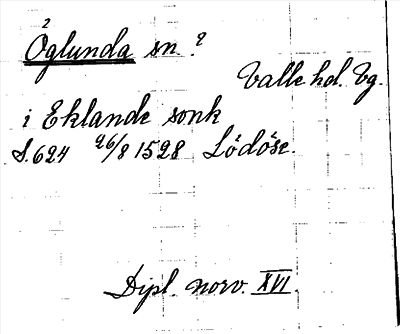 2
Öglunda sn. ?
Valle hd. Vg.
i Eklande sonk
S. 624 26/8 1528 Lödöse.
Dipl. norv. XVI.